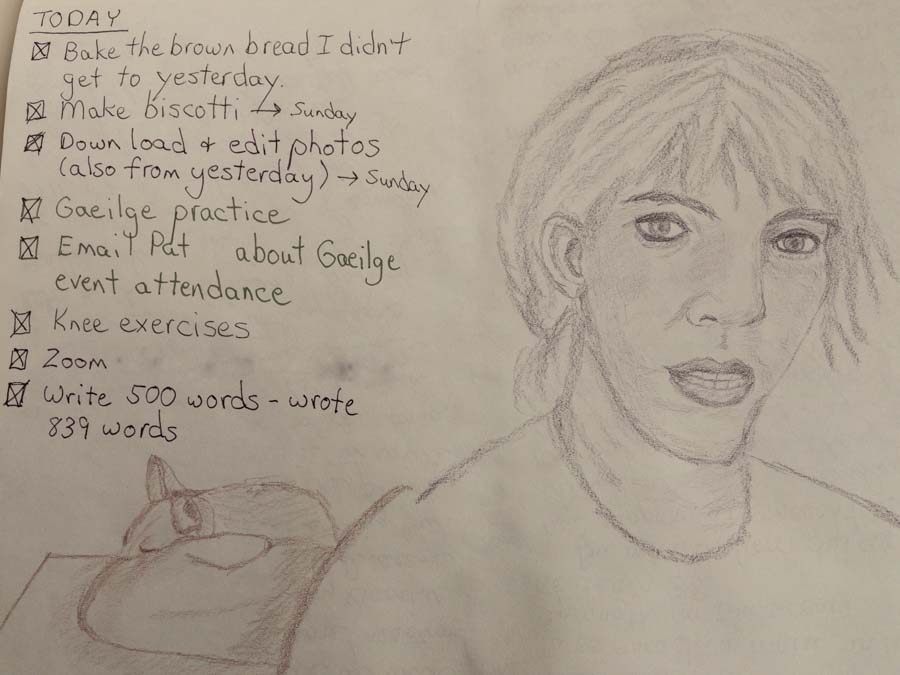 TODAY
☒ Bake the brown bread I didn't
get to yesterday.
☒ Make biscotti → Sunday
☒ Down load & edit photos
(also from yesterday) → Sunday
☒ Gaeilge practice
☒ Email Pat about Gaeilge
event attendance
☒ Knee exercises
☒ Zoom
☒ Write 500 words - wrote
839 words